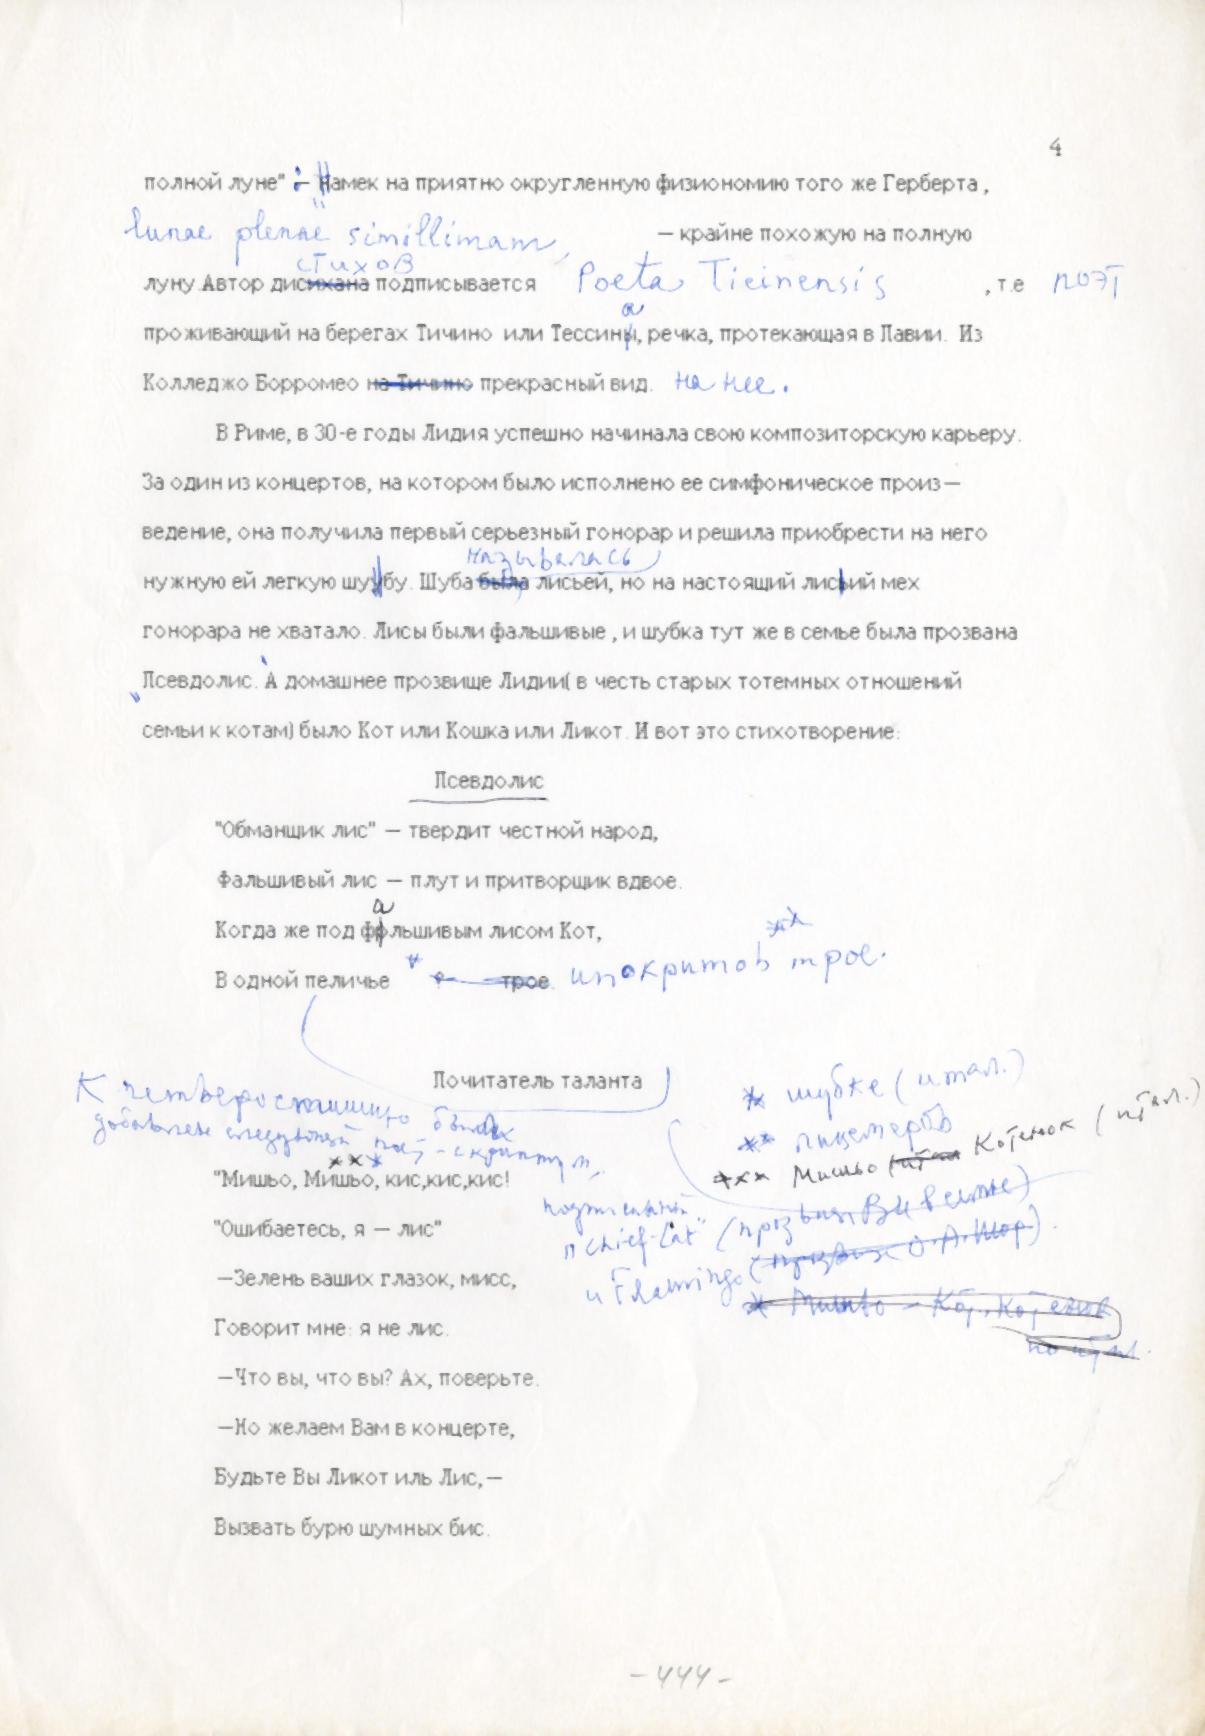 4
полной луне" — Намек на приятно округленную физиономию того же Герберта,
lunae plenae simillimam, — крайне похожую на полную
стихов
луну.Автор дисихана подписывается Poeta Ticinensis , т.е поэт
а
проживающий на берегах Тичино или Тессины, речка, протекающая в Павии. Из
Колледжо Борромео на Тичино прекрасный вид. на нее.
В Риме, в 30-е годы Лидия успешно начинала свою композиторскую карьеру.
За один из концертов, на котором было исполнено ее симфоническое произ—
ведение, она получила первый серьезный гонорар и решила приобрести на него
называлась
нужную ей легкую шуубу. Шуба была лисьей, но на настоящий лисьий мех
гонорара не хватало. Лисы были фальшивые , и шубка тут же в семье была прозвана
Псевдолис. А домашнее прозвище Лидии( в честь старых тотемных отношений
семьи к котам) было Кот или Кошка или Ликот. И вот это стихотворение:
Псевдолис
"Обманщик лис" — твердит честной народ,
Фальшивый лис — плут и притворщик вдвое.
а
Когда же под фрльшивым лисом Кот,
**
В одной пеличье * трое. ипокритов трое.
Почитатель таланта
* шубке (итал.)
К четверостишию был
** лицемеров
добавлен следующий пост-скриптум,
*** Мишьо Котенок (итал.)
***
"Мишьо, Мишьо, кис,кис,кис!
подписанный
"Chief-Cat" (прозвищ В И в семье)
"Ошибаетесь, я — лис"
и Flamingo (прозвище О.А.Шор).
—Зелень ваших глазок, мисс,
* Мишьо — Кот, Котенок
Говорит мне: я не лис.
по итал.
—Что вы, что вы? Ах, поверьте.
—Но желаем Вам в концерте,
Будьте Вы Ликот иль Лис,—
Вызвать бурю шумных бис.
-444-